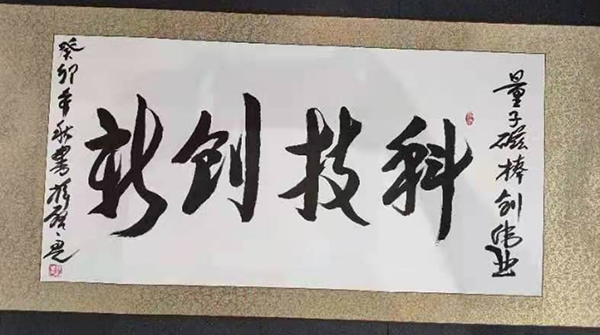 量子磁棒创伟业
科技创新
癸卯年秋书